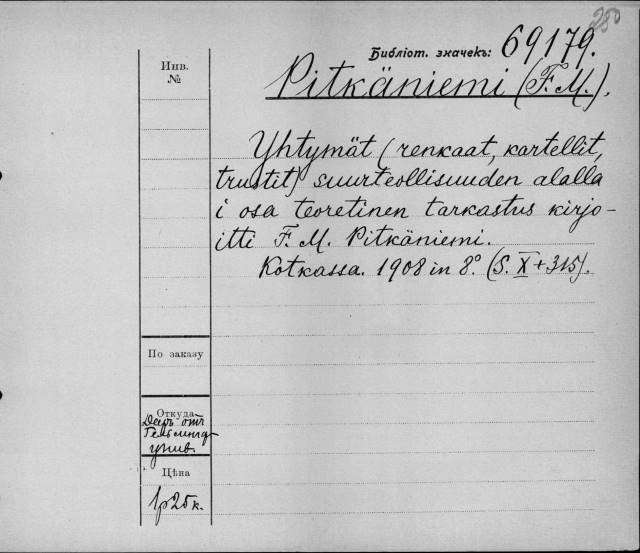 250
Библіот. значекъ: 69179.
Инв.
№
Pitkäniemi (F. M.).
Yhtymät (renkaat, kartellit,
trustit) suurteollisuuden alalla
i osa teoretinen tarkastus kirjo-
itti F. M. Pitkäniemi.
Kotkassa. 1908 in 8°. (S. X + 315).
По заказу
Откуда
отъ
Гельсингф
унив.
Цѣна
1р25к.